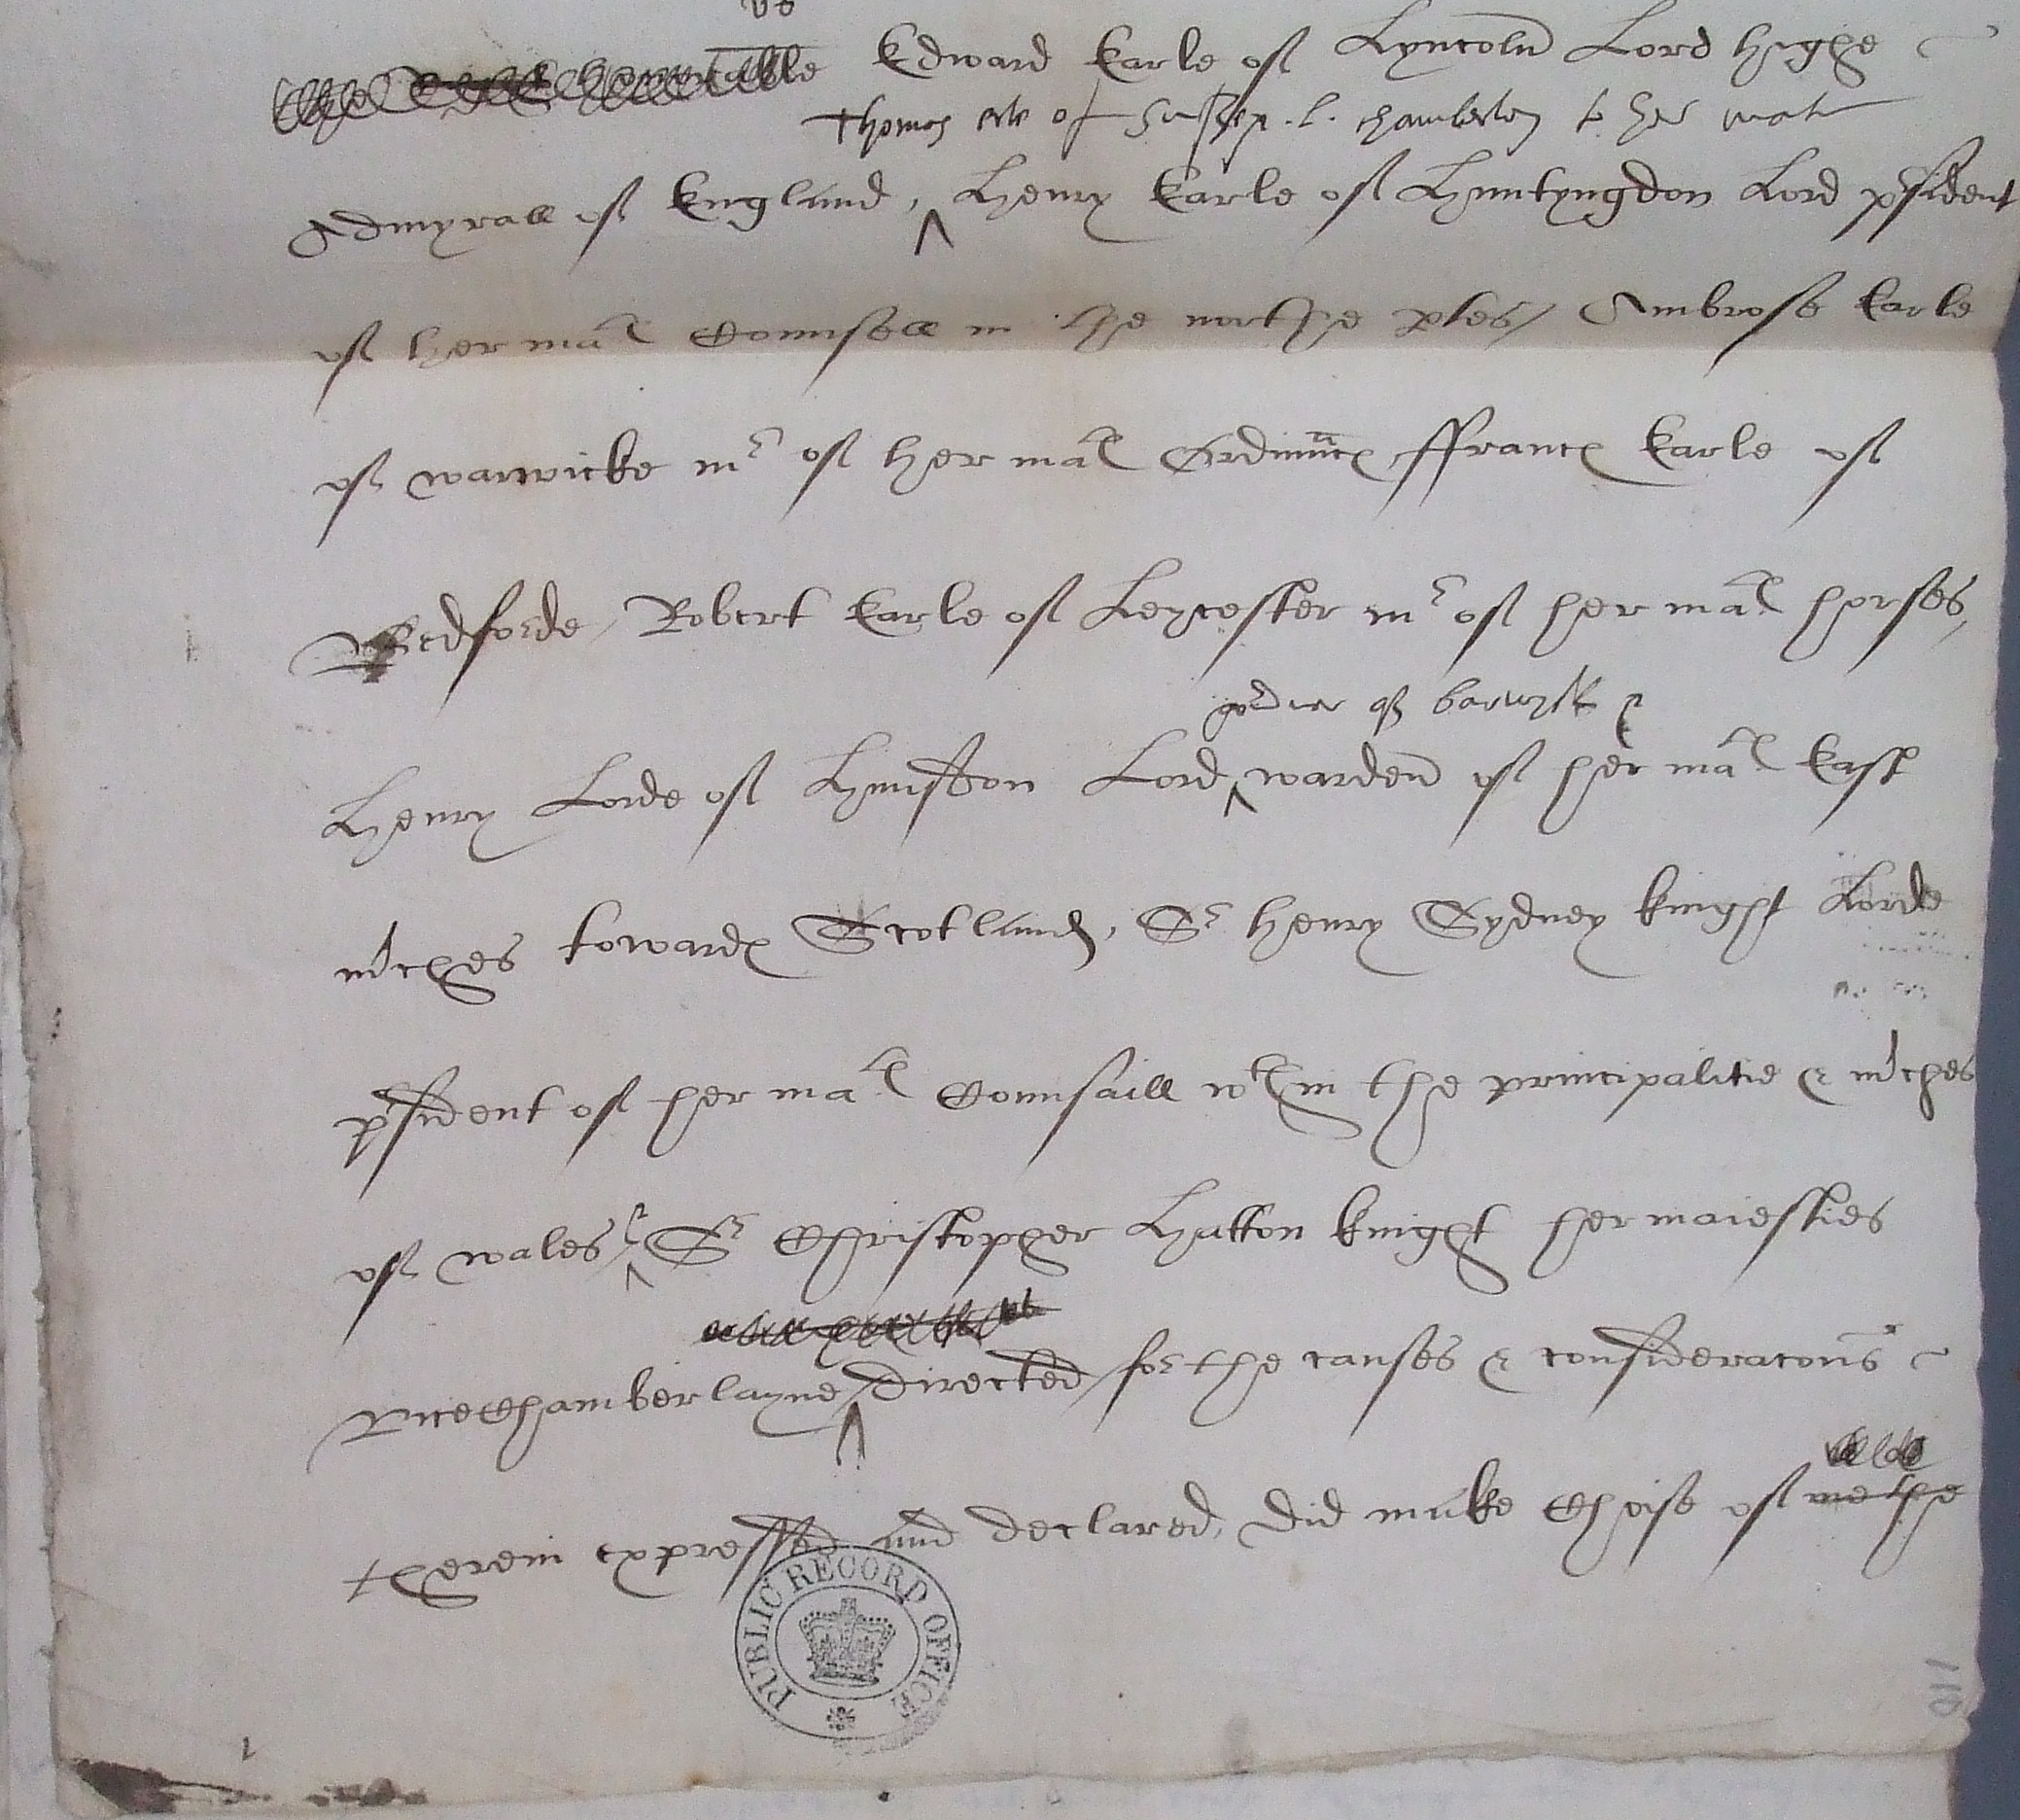 Edward Earle of Lyncoln Lord highe
Thomas erle of Sussex. l. chamberlen to her mati
Admyrall of England, Henry Earle of Huntyngdon Lord psident
of her mats Counsell in the northe ptes / Ambrose Earle
of warwicke mr of her mats Ordinnce ffrances Earle of
Bedforde / Robert Earle of Leycester mr of her mats horses,
of barwyk &
Henry Lorde of Hunsdon Lord warden of her mats East
mches towardes Scotland, Sr Henry Sydney knight Lorde
psident of her mats Counsaill wthin the principalitie & mches
of wales / Sr Christopher Hatton knight her maiesties
vice Chamberlayne / directed / for the causes & consideracons
therein expressed and declared, did make Choise of me the
PUBLIC RECORD OFFICE
110